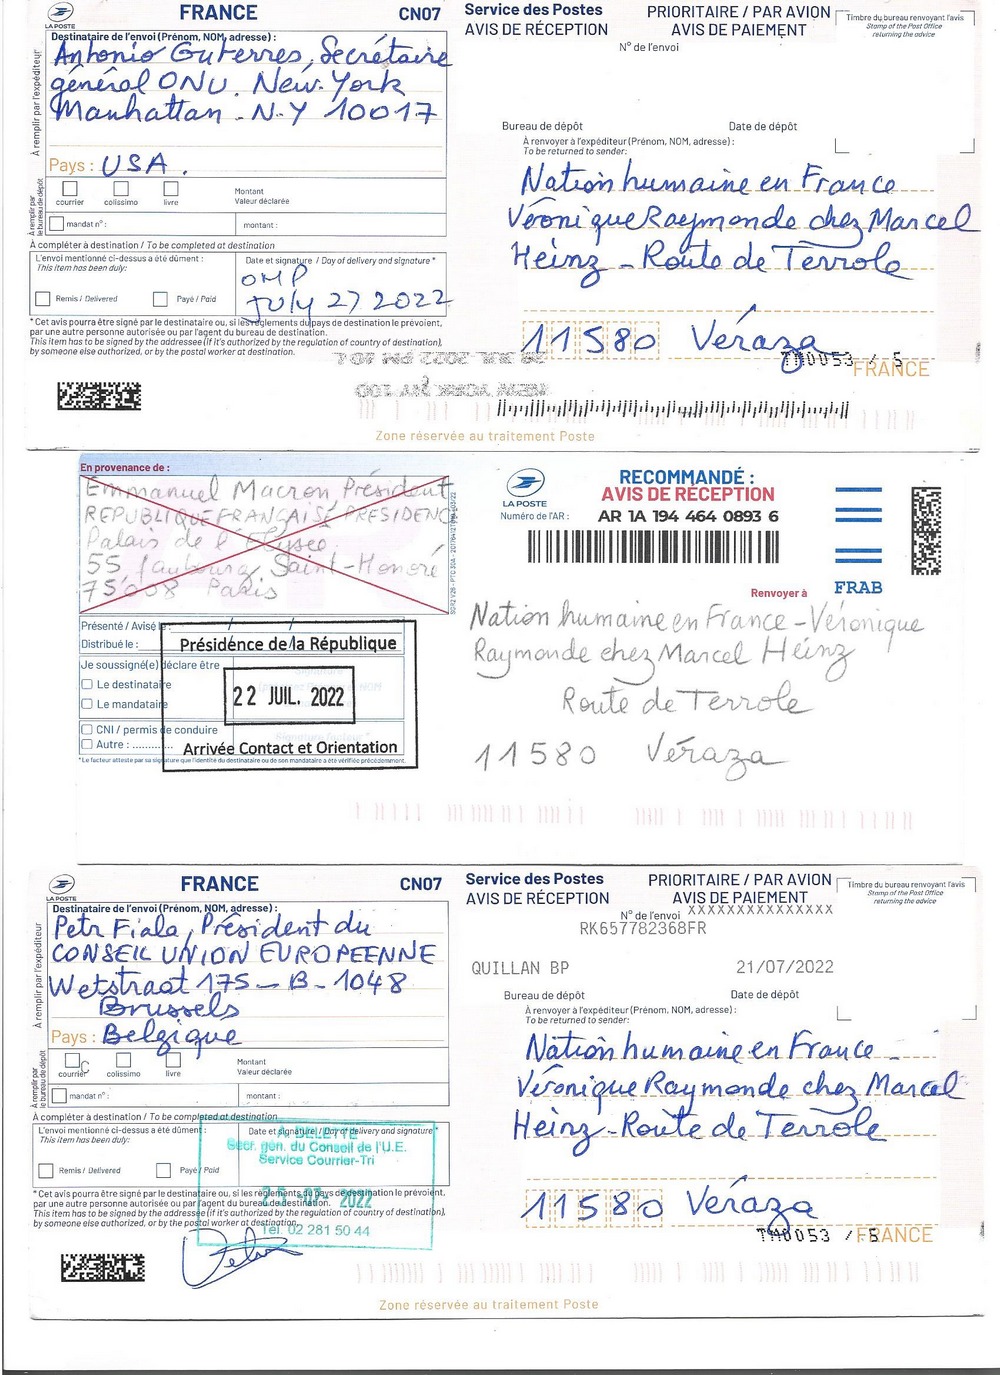 FRANCE
CN07
LA POSTE
Destinataire de l'envoi (Prénom, NOM, adresse) :
À remplir par l'expéditeur
Antonio Guterres, Secrétaire
général ONU. New-York
Manhattan - N-Y 10017
Pays : USA.
À remplir par le bureau de dépôt
courrier
colissimo
livre
Montant
Valeur déclarée
mandat n° :
montant :
À compléter à destination / To be completed at destination
L'envoi mentionné ci-dessus a été dûment :
This item has been duly:
Remis / Delivered
Payé / Paid
Date et signature / Day of delivery and signature *
OMP
July 27 2022
* Cet avis pourra être signé par le destinataire ou, si les règlements du pays de destination le prévoient,
par une autre personne autorisée ou par l'agent du bureau de destination.
This item has to be signed by the addressee (if it's authorized by the regulation of country of destination),
by someone else authorized, or by the postal worker at destination.
Service des Postes
AVIS DE RÉCEPTION
PRIORITAIRE / PAR AVION
AVIS DE PAIEMENT
N° de l'envoi
Timbre du bureau renvoyant l'avis
Stamp of the Post Office
returning the advice
Bureau de dépôt
Date de dépôt
À renvoyer à l'expéditeur (Prénom, NOM, adresse) :
To be returned to sender:
Nation humaine en France
Véronique Raymonde chez Marcel
Heinz - Route de Terrole
11580 Véraza
TM0053 / 5
FRANCE
JUL 2022 PM
NEW YORK NY 100
Zone réservée au traitement Poste
En provenance de :
Emmanuel Macron, Président
REPUBLIQUE FRANÇAISE PRESIDENC
Palais de l'Elysée
55 faubourg Saint-Honoré
75008 Paris
Présenté / Avisé le : / /
Distribué le : / /
Je soussigné(e) déclare être
Le destinataire
Le mandataire
CNI / permis de conduire
Autre : ............
* Le facteur atteste par sa signature que l'identité du destinataire ou de son mandataire a été vérifiée précédemment.
Présidence de la République
22 JUIL. 2022
Arrivée Contact et Orientation
LA POSTE
RECOMMANDÉ :
AVIS DE RÉCEPTION
Numéro de l'AR : AR 1A 194 464 0893 6
FRAB
Renvoyer à
Nation humaine en France - Véronique
Raymonde chez Marcel Heinz
Route de Terrole
11580 Véraza
FRANCE
CN07
LA POSTE
Destinataire de l'envoi (Prénom, NOM, adresse) :
À remplir par l'expéditeur
Petr Fiala, Président du
CONSEIL UNION EUROPEENNE
Wetstraat 175 - B - 1048
Brussels
Pays : Belgique
À remplir par le bureau de dépôt
courrier
colissimo
livre
Montant
Valeur déclarée
mandat n° :
montant :
À compléter à destination / To be completed at destination
L'envoi mentionné ci-dessus a été dûment :
This item has been duly:
Remis / Delivered
Payé / Paid
Date et signature / Day of delivery and signature *
A. DELETTE
Secr. gén. du Conseil de l'U.E.
Service Courrier-Tri
-07- 2022
Tel. 02 281 50 44
* Cet avis pourra être signé par le destinataire ou, si les règlements du pays de destination le prévoient,
par une autre personne autorisée ou par l'agent du bureau de destination.
This item has to be signed by the addressee (if it's authorized by the regulation of country of destination),
by someone else authorized, or by the postal worker at destination.
Service des Postes
AVIS DE RÉCEPTION
PRIORITAIRE / PAR AVION
AVIS DE PAIEMENT
N° de l'envoi XXXXXXXXXXXXXXX
RK657782368FR
Timbre du bureau renvoyant l'avis
Stamp of the Post Office
returning the advice
QUILLAN BP
21/07/2022
Bureau de dépôt
Date de dépôt
À renvoyer à l'expéditeur (Prénom, NOM, adresse) :
To be returned to sender:
Nation humaine en France -
Véronique Raymonde chez Marcel
Heinz - Route de Terrole
11580 Véraza
TM0053 / 5
FRANCE
Zone réservée au traitement Poste